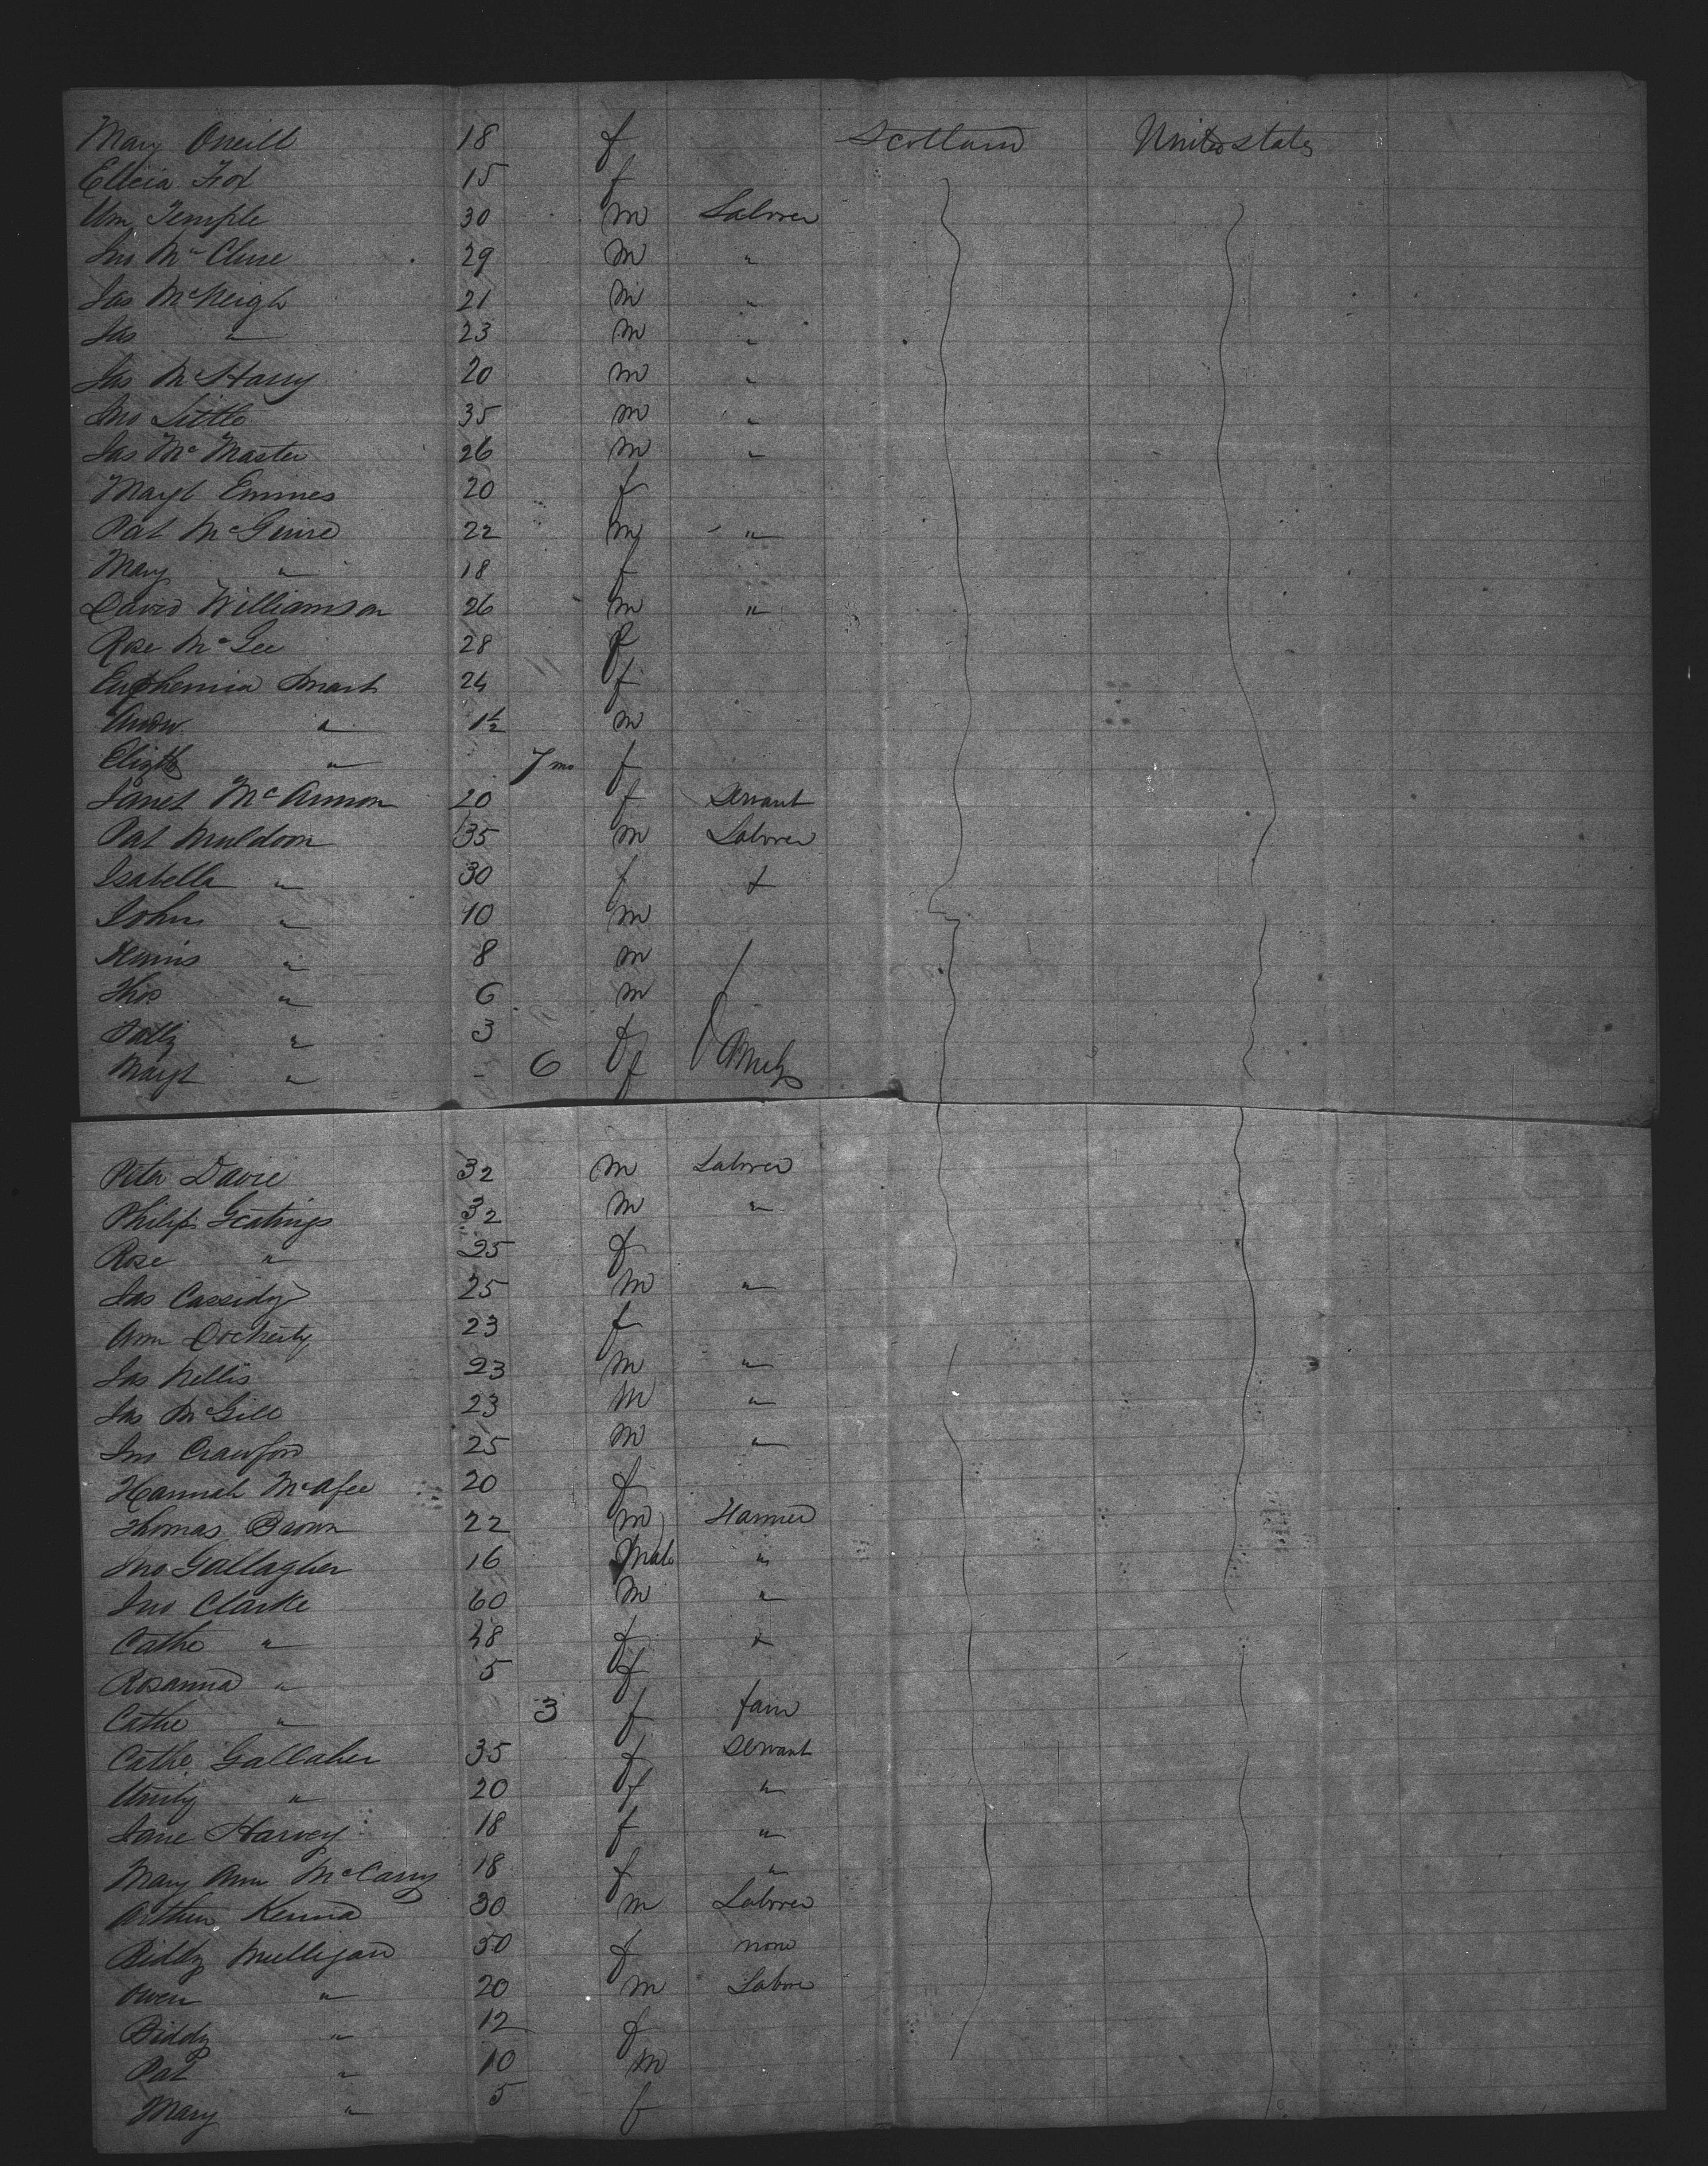 Mary Oneill 18 f Scotland United states
Ellcia Fox 15 f
Wm Temple 30 m Laborer
Jno McClure 29 m "
Jas McKeigh 21 m "
Jas " 23 m "
Jas McHarry 20 m "
Jno Little 35 m "
Jas McMaster 26 m "
Margt Emmes 20 f
Pat McGuire 22 m "
Mary " 18 f
David Williamson 26 m "
Rose McGee 28 f
Euphemia Smart 24 f
Andw " 1½ m
Elizth " 7 mo f
Janet McAnmon 20 f Servant
Pat Muldoon 35 m Laborer
Isabella " 30 f +
John " 10 m
" 8 m
Thos " 6 m
" 3 f
Margt " - 6 f
Peter Davie 32 m Laborer
Philip Geatings 32 m "
Rose " 25 f
Jas Cassidy 25 m "
Ann Docherty 23 f
Jas Nellis 23 m "
Jas McGill 23 m "
Jno Crawford 25 m "
Hannah McAfee 20 f
Thomas Brown 22 m Farmer
Jno Gallagher 16 Male "
Jno Clarke 60 m "
Cathe " 48 f +
Rosanna " 5 f
Cathe " 3 f fam
Cathe Gallaher 35 f Servant
Unity " 20 f "
Jane Harvey 18 f "
Mary Ann McCarry 18 f "
Arthur Kenna 30 m Laborer
Biddy Mulligan 50 f none
Owen " 20 m Labore
Biddy " 12 f
Pat " 10 m
Mary " 5 f